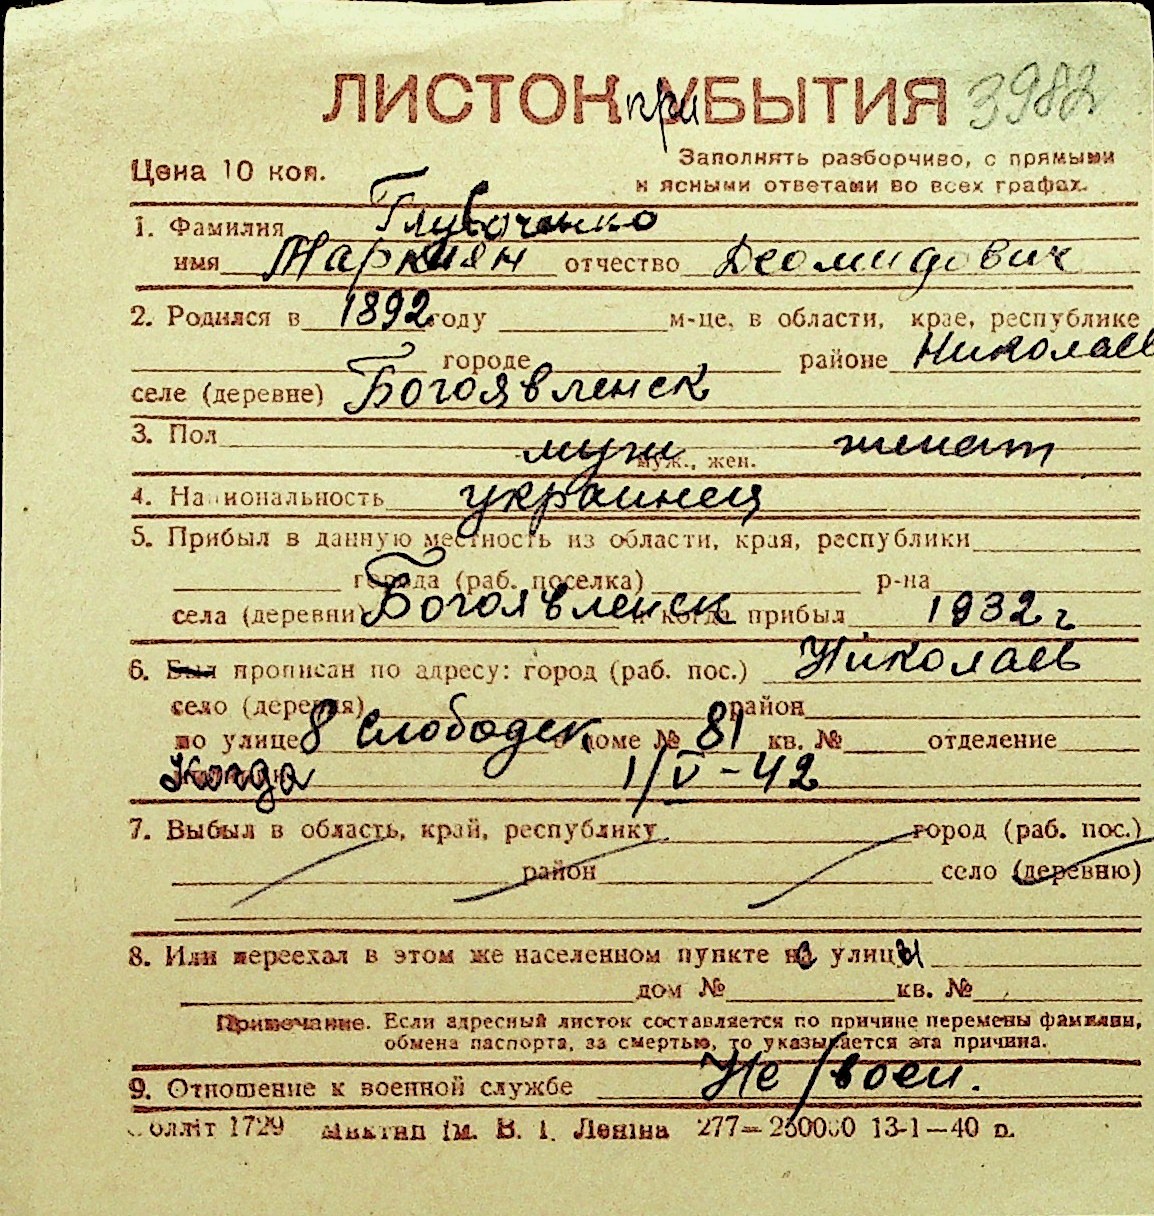 ЛИСТОК при УБЫТИЯ 3982
Цена 10 коп.
Заполнять разборчиво, с прямыми
и ясными ответами во всех графах.
1. Фамилия Глувоченко
имя Маркиян отчество Деомидович
2. Родился в 1892 году м-це, в области, крае, республике
городе районе Николаев
селе (деревне) Богоявленск
3. Пол муж женат
муж., жен.
4. Национальность украинец
5. Прибыл в данную местность из области, края, республики
города (раб. поселка) р-на
села (деревни) Богоявленск и когда прибыл 1932 г
6. Был прописан по адресу: город (раб. пос.) Николаев
село (деревня) район
по улице 8 Слободск в доме № 81 кв. № отделение
Когда 1/V-42
7. Выбыл в область, край, республику город (раб. пос.)
район село (деревню)
8. Или переехал в этом же населенном пункте из улицы
дом № кв. №
Примечание. Если адресный листок составляется по причине перемены фамилии,
обмена паспорта, за смертью, то указывается эта причина.
9. Отношение к военной службе Не/воен.
оллiт 1729 ім. В. І. Леніна 277— 250000 13-1—40 р.